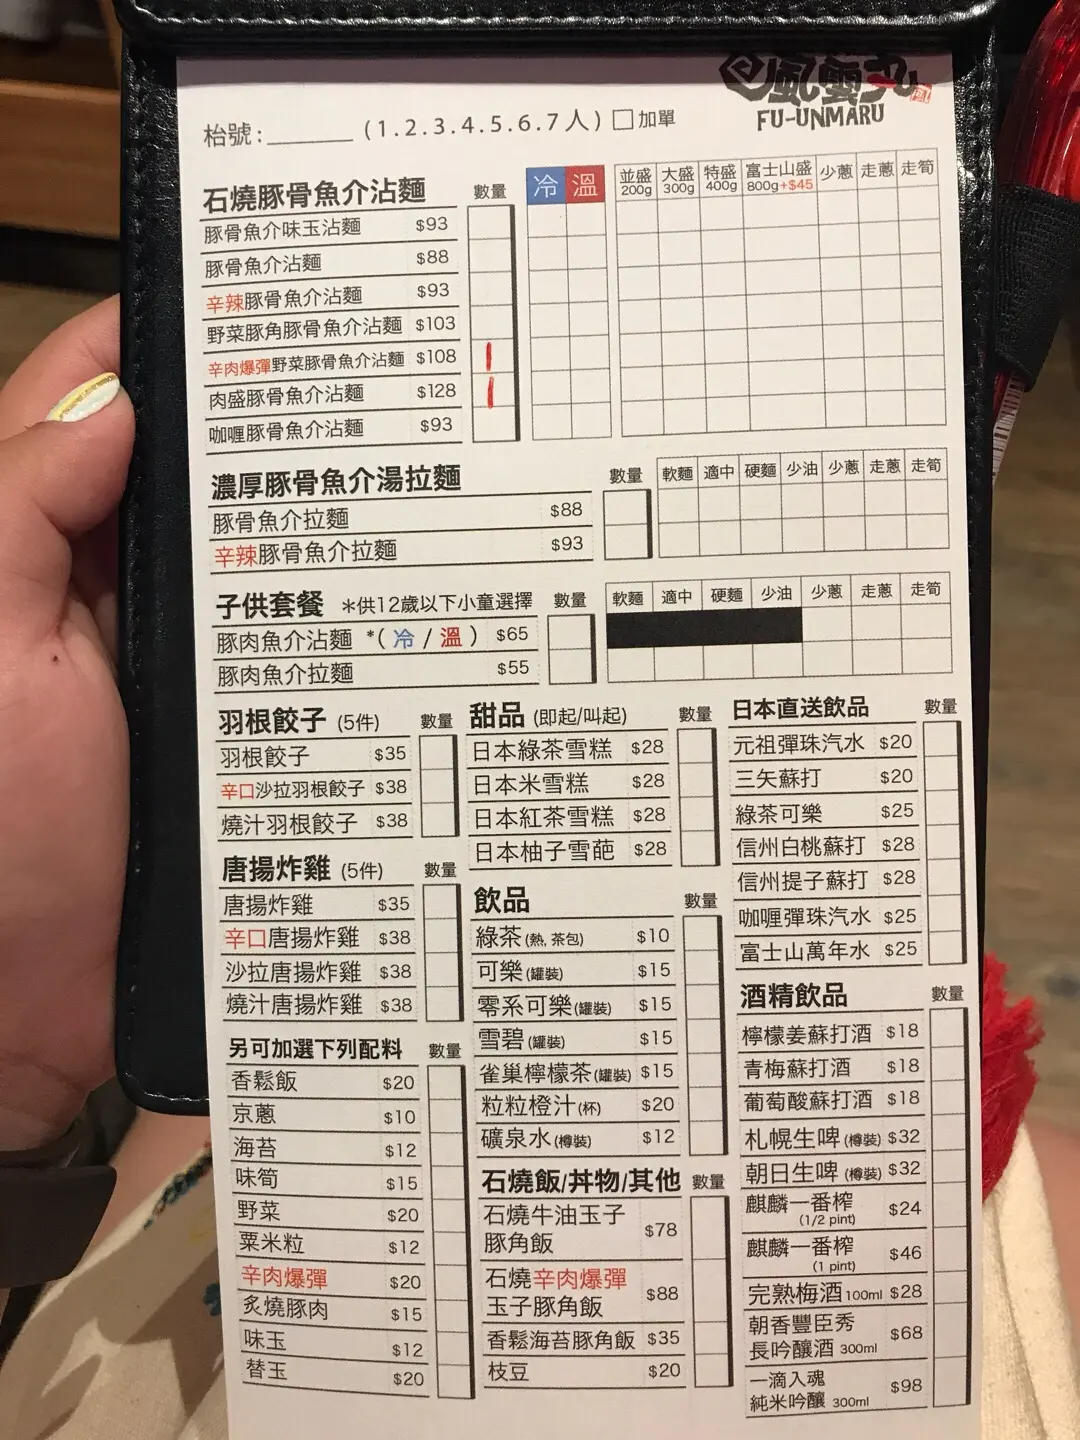 風雲丸
FU-UNMARU
枱號:_______ (1.2.3.4.5.6.7人) □加單
石燒豚骨魚介沾麵 數量 冷 溫 並盛 200g 大盛 300g 特盛 400g 富士山盛 800g+$45 少蔥 走蔥 走筍
豚骨魚介味玉沾麵 $93
豚骨魚介沾麵 $88
辛辣豚骨魚介沾麵 $93
野菜豚角豚骨魚介沾麵 $103
辛肉爆彈野菜豚骨魚介沾麵 $108
肉盛豚骨魚介沾麵 $128
咖喱豚骨魚介沾麵 $93
濃厚豚骨魚介湯拉麵 數量 軟麵 適中 硬麵 少油 少蔥 走蔥 走筍
豚骨魚介拉麵 $88
辛辣豚骨魚介拉麵 $93
子供套餐 *供12歲以下小童選擇 數量 軟麵 適中 硬麵 少油 少蔥 走蔥 走筍
豚肉魚介沾麵 *(冷/溫) $65
豚肉魚介拉麵 $55
羽根餃子 (5件) 數量
羽根餃子 $35
辛口沙拉羽根餃子 $38
燒汁羽根餃子 $38
唐揚炸雞 (5件) 數量
唐揚炸雞 $35
辛口唐揚炸雞 $38
沙拉唐揚炸雞 $38
燒汁唐揚炸雞 $38
另可加選下列配料 數量
香鬆飯 $20
京蔥 $10
海苔 $12
味筍 $15
野菜 $20
粟米粒 $12
辛肉爆彈 $20
炙燒豚肉 $15
味玉 $12
替玉 $20
甜品 (即起/叫起) 數量
日本綠茶雪糕 $28
日本米雪糕 $28
日本紅茶雪糕 $28
日本柚子雪葩 $28
飲品 數量
綠茶(熱, 茶包) $10
可樂(罐裝) $15
零系可樂(罐裝) $15
雪碧(罐裝) $15
雀巢檸檬茶(罐裝) $15
粒粒橙汁(杯) $20
礦泉水(樽裝) $12
石燒飯/丼物/其他 數量
石燒牛油玉子
豚角飯 $78
石燒辛肉爆彈
玉子豚角飯 $88
香鬆海苔豚角飯 $35
枝豆 $20
日本直送飲品 數量
元祖彈珠汽水 $20
三矢蘇打 $20
綠茶可樂 $25
信州白桃蘇打 $28
信州提子蘇打 $28
咖喱彈珠汽水 $25
富士山萬年水 $25
酒精飲品 數量
檸檬姜蘇打酒 $18
青梅蘇打酒 $18
葡萄酸蘇打酒 $18
札幌生啤(樽裝) $32
朝日生啤(樽裝) $32
麒麟一番榨
(1/2 pint) $24
麒麟一番榨
(1 pint) $46
完熟梅酒100ml $28
朝香豐臣秀
長吟釀酒 300ml $68
一滴入魂
純米吟釀 300ml $98